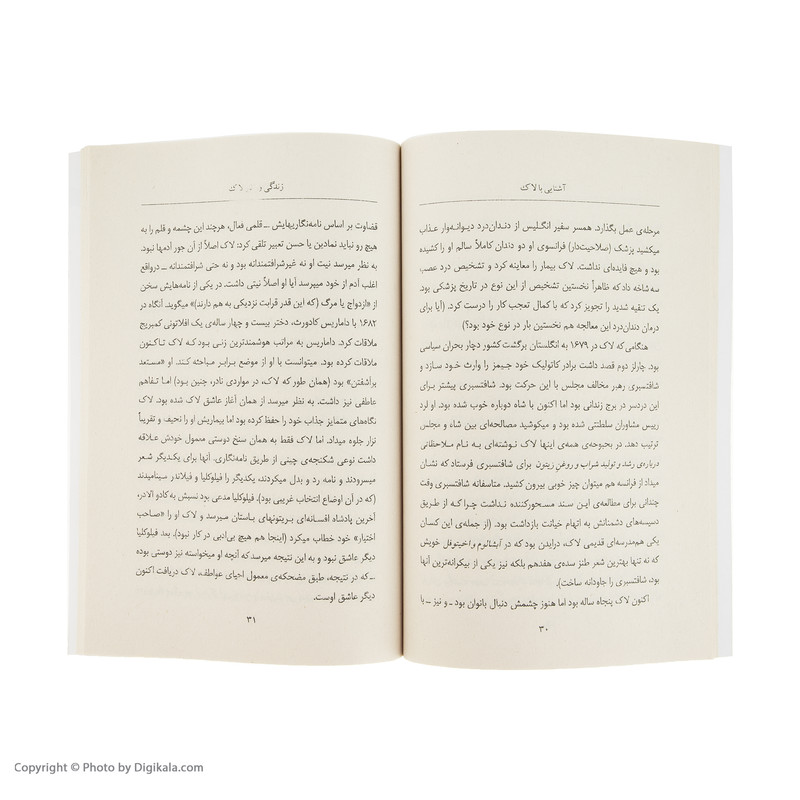 آشنایی با لاک
مرحله‌ی عمل بگذارد. همسر سفیر انگلیس از دندان‌درد دیوانه‌وار عذاب
میکشید پزشک (صلاحیت‌دار) فرانسوی او دو دندان کاملاً سالم او را کشیده
بود و هیچ فایده‌ای نداشت. لاک بیمار را معاینه کرد و تشخیص درد عصب
سه شاخه داد که ظاهراً نخستین تشخیص از این نوع در تاریخ پزشکی بود.
یک تنقیه شدید را تجویز کرد که با کمال تعجب کار را درست کرد. (آیا برای
درمان دندان‌درد این معالجه هم نخستین بار در نوع خود بود؟)
هنگامی که لاک در ۱۶۷۹ به انگلستان برگشت کشور دچار بحران سیاسی
بود. چارلز دوم قصد داشت برادر کاتولیک خود جیمز را وارث خود سازد و
شافتسبری رهبر مخالف مجلس با این حرکت بود. شافتسبری پیشتر برای
این دردسر در برج زندانی بود اما اکنون با شاه دوباره خوب شده بود. او لرد
رییس مشاوران سلطنتی شده بود و میکوشید مصالحه‌ای بین شاه و مجلس
ترتیب دهد. در بحبوحه‌ی همه‌ی اینها لاک نوشته‌ای به نام ملاحظاتی
درباره‌ی رشد و تولید شراب و روغن زیتون برای شافتسبری فرستاد که نشان
میداد از فرانسه هم میتوان چیز خوبی بیرون کشید. متاسفانه شافتسبری وقت
چندانی برای مطالعه‌ی این سند مسحورکننده نداشت چرا که از طریق
دسیسه‌های دشمنانش به اتهام خیانت بازداشت بود. (از جمله‌ی این کسان
یکی هم‌مدرسه‌ای قدیمی لاک، درایدن بود که در آبشالوم و اخیتوفل خویش
که نه تنها بهترین شعر طنز سده‌ی هفدهم بلکه نیز یکی از بیکرانه‌ترین آنها
بود، شافتسبری را جاودانه ساخت).
اکنون لاک پنجاه ساله بود اما هنوز چشمش دنبال بانوان بود ـ و نیز ـ با
۳۰
زندگی و لاک
قضاوت بر اساس نامه‌نگاریهایش ـ قلمی فعال، هرچند این چشمه و قلم را به
هیچ رو نباید نمادین یا حسن تعبیر تلقی کرد: لاک اصلاً از آن جور آدمها نبود.
به نظر میرسد نیت او نه غیرشرافتمندانه بود و نه حتی شرافتمندانه ـ درواقع
اغلب آدم از خود میپرسد آیا او اصلاً نیتی داشت. در یکی از نامه‌هایش سخن
از «ازدواج یا مرگ (که این قدر قرابت نزدیکی به هم دارند)» میگوید. آنگاه در
۱۶۸۲ با داماریس کادورث، دختر بیست و چهار ساله‌ی یک افلاتونی کمبریج
ملاقات کرد. داماریس به مراتب هوشمندترین زنی بود که لاک تاکنون
ملاقات کرده بود. میتوانست با او از موضع برابر مباحثه کند. او «مستعد
برآشفتن» بود (همان طور که لاک، در مواردی نادر، چنین بود) اما تفاهم
عاطفی نیز داشت. به نظر میرسد از همان آغاز عاشق لاک شده بود. لاک
نگاه‌های متمایز جذاب خود را حفظ کرده بود اما بیماریش او را نحیف و تقریباً
نزار جلوه میداد. اما لاک فقط به همان سنخ دوستی معمول خودش علاقه
داشت نوعی شکنجه‌ی چینی از طریق نامه‌نگاری. آنها برای یکدیگر شعر
میسرودند و نامه رد و بدل میکردند، یکدیگر را فیلوکلیا و فیلاندر مینامیدند
(که در آن اوضاع انتخاب غریبی بود). فیلوکلیا مدعی بود نسبش به کادو الادر،
آخرین پادشاه افسانه‌ای بریتونهای باستان میرسد و لاک او را «صاحب
اختیار» خود خطاب میکرد (اینجا هم هیچ بی‌ادبی در کار نبود). بعد فیلوکلیا
دیگر عاشق نبود و به این نتیجه میرسد که آنچه او میخواسته نیز دوستی بوده
ـ که در نتیجه، طبق مضحکه‌ی معمول احیای عواطف، لاک دریافت اکنون
دیگر عاشق اوست.
۳۱
Copyright © Photo by Digikala.com